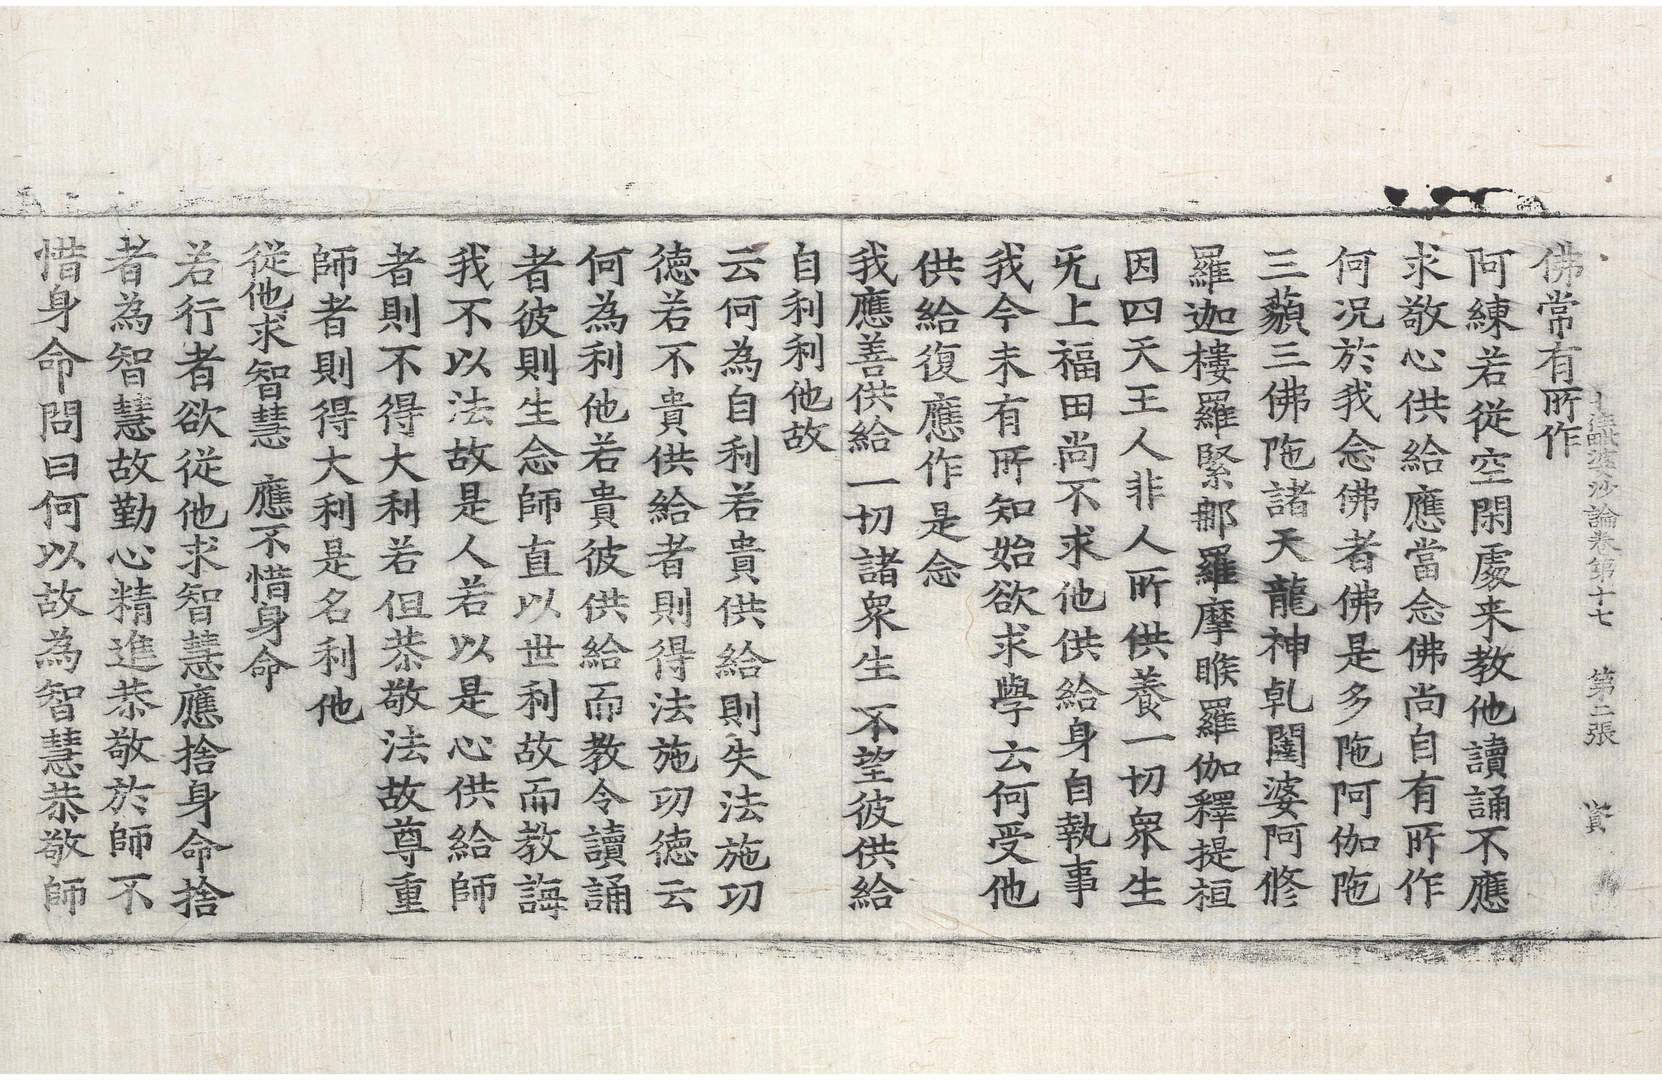 佛常有所作
十住毗婆沙論卷第十七 第二張 資
阿練若從空閑處来教他讀誦不應
求敬心供給應當念佛尚自有所作
何况於我念佛者佛是多陁阿伽陁
三藐三佛陁諸天龍神乹闥婆阿脩
羅迦樓羅緊那羅摩睺羅伽釋提桓
因四天王人非人所供養一切衆生
旡上福田尚不求他供給身自執事
我今未有所知始欲求學云何受他
供給復應作是念
我應善供給一切諸衆生不望彼供給
自利利他故
云何為自利若貴供給則失法施功
德若不貴供給者則得法施功德云
何為利他若貴彼供給而教令讀誦
者彼則生念師直以世利故而教誨
我不以法故是人若以是心供給師
者則不得大利若但恭敬法故尊重
師者則得大利是名利他
從他求智慧 應不惜身命
若行者欲從他求智慧應捨身命捨
者為智慧故勤心精進恭敬於師不
惜身命問曰何以故為智慧恭敬師